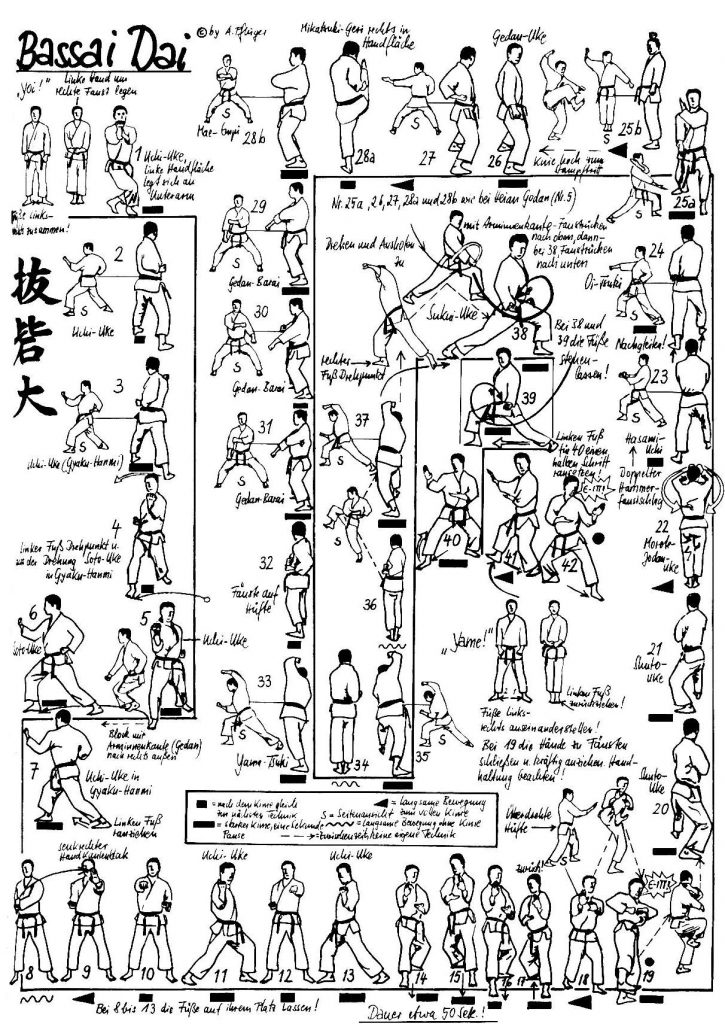 Bassai Dai
© by A. Pflüger
"Yoi!"
Linke Hand um
rechte Faust legen
1
Uchi-Uke,
linke Handfläche
legt sich an
Unterarm
Füße links-
zusammen!
抜砦大
2
S
Uchi-Uke
3
S
Uchi-Uke (Gyaku-Hanmi)
4
Linken Fuß Drehpunkt u.
in der Drehung Soto-Uke
in Gyaku-Hanmi
5
Uchi-Uke
6
Soto-Uke
Block mit
Arminnenkante (Gedan)
nach rechts außen
7
Uchi-Uke in
Gyaku-Hanmi
Linken Fuß
ranziehen
senkrechter
8
9
10
Uchi-Uke
11
12
Uchi-Uke
13
Bei 8 bis 13 die Füße auf ihrem Platz lassen!
14
15
16
17
zurück!
18
19
E-III!
Dauer etwa 50 Sek.!
Überdrehte
Hüfte
20
Shuto-
Uke
21
Shuto-
Uke
22
Morote-
Jodan-
Uke
23
S
Hasami-
Uchi
Doppelter
Hammer-
faustschlag
24
Oi-Tsuki
S
Nachgleiten!
25a
S
25b
S
Knie hoch zum
26
Gedan-Uke
27
S
28a
Mikatsuki-Geri rechts in
Handfläche
28b
S
29
S
Gedan-Barai
30
S
Gedan-Barai
31
S
Gedan-Barai
32
Fäuste auf
Hüfte
33
S
Yama-Tsuki
34
35
S
36
S
37
S
Nr. 25a, 26, 27, 28a und 28b wie bei Heian Godan (Nr. 5)
Drehen und Ausholen
zu
mit Arminnenkante-Faustrücken
nach oben, dann
bei 38 Faustrücken
nach unten
Sukui-Uke
38
rechter
Fuß Drehpunkt
Bei 38 und
39 die Füße
stehen-
lassen!
39
Linken Fuß
für 40 einen
halben Schritt
ransetzen!
40
41
42
E-III!
"Yame!"
Linken Fuß
zurückziehen!
Füße links-
rechts auseinanderstellen!
Bei 19 die Hände zu Fäusten
schließen u. kräftig anziehen. Hand-
haltung beachten!
= nach dem Kime gleich
zur nächsten Technik
= starkes Kime, eine Sekunde
Pause
= langsame Bewegung
S = Seitenansicht
= langsame Bewegung ohne Kime
= Zwischenseits, keine eigene Technik